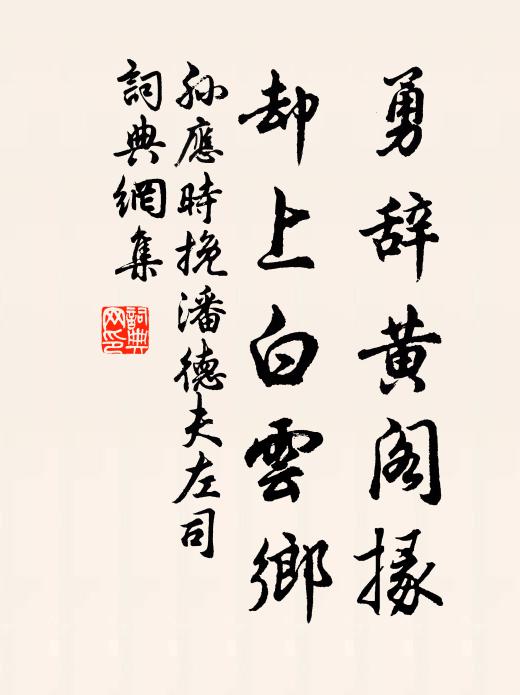 勇辞黄阁掾
却上白雲鄉
孫應時挽潘德夫左司
詞典網集
詞典网印